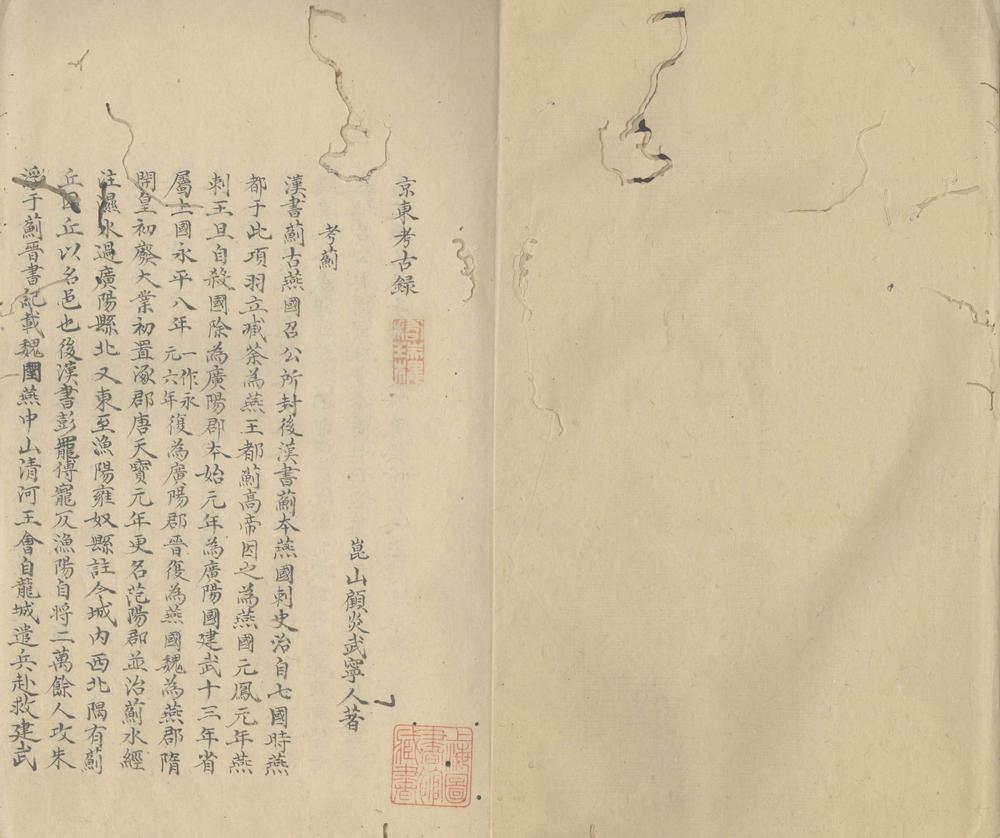 京東考古録
崑山顧炎武寧人著
考薊
漢書薊古燕國召公所封後漢書薊本燕國刺史治自七國時燕
都于此項羽立臧荼為燕王都薊高帝因之為燕國元鳳元年燕
刺王旦自殺國除為廣陽郡本始元年為廣陽國建武十三年省
屬上國永平八年一作永元六年復為廣陽郡晉復為燕國魏為燕郡隋
開皇初廢大業初置涿郡唐天寶元年更名范陽郡並治薊水經
注㶟水過廣陽縣北又東至漁陽雍奴縣註今城内西北隅有薊
丘因丘以名邑也後漢書彭寵傅寵反漁陽自将二萬餘人攻朱
浮于薊晉書記載魏圍燕中山清河王會自龍城遣兵赴救建武
上海圖書館藏書